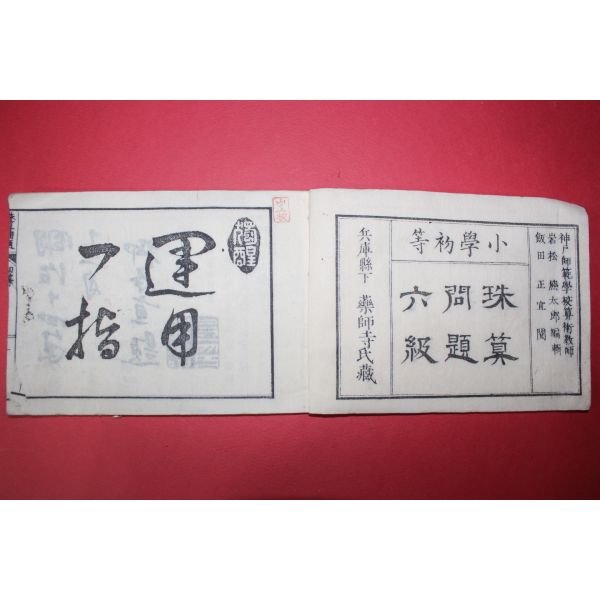 神戸師範學校算術教師
岩松熊太郎編輯
飯田正宜閲
小學初等
珠算
問題
六級
兵庫縣下 藥師寺氏藏
運用
一指